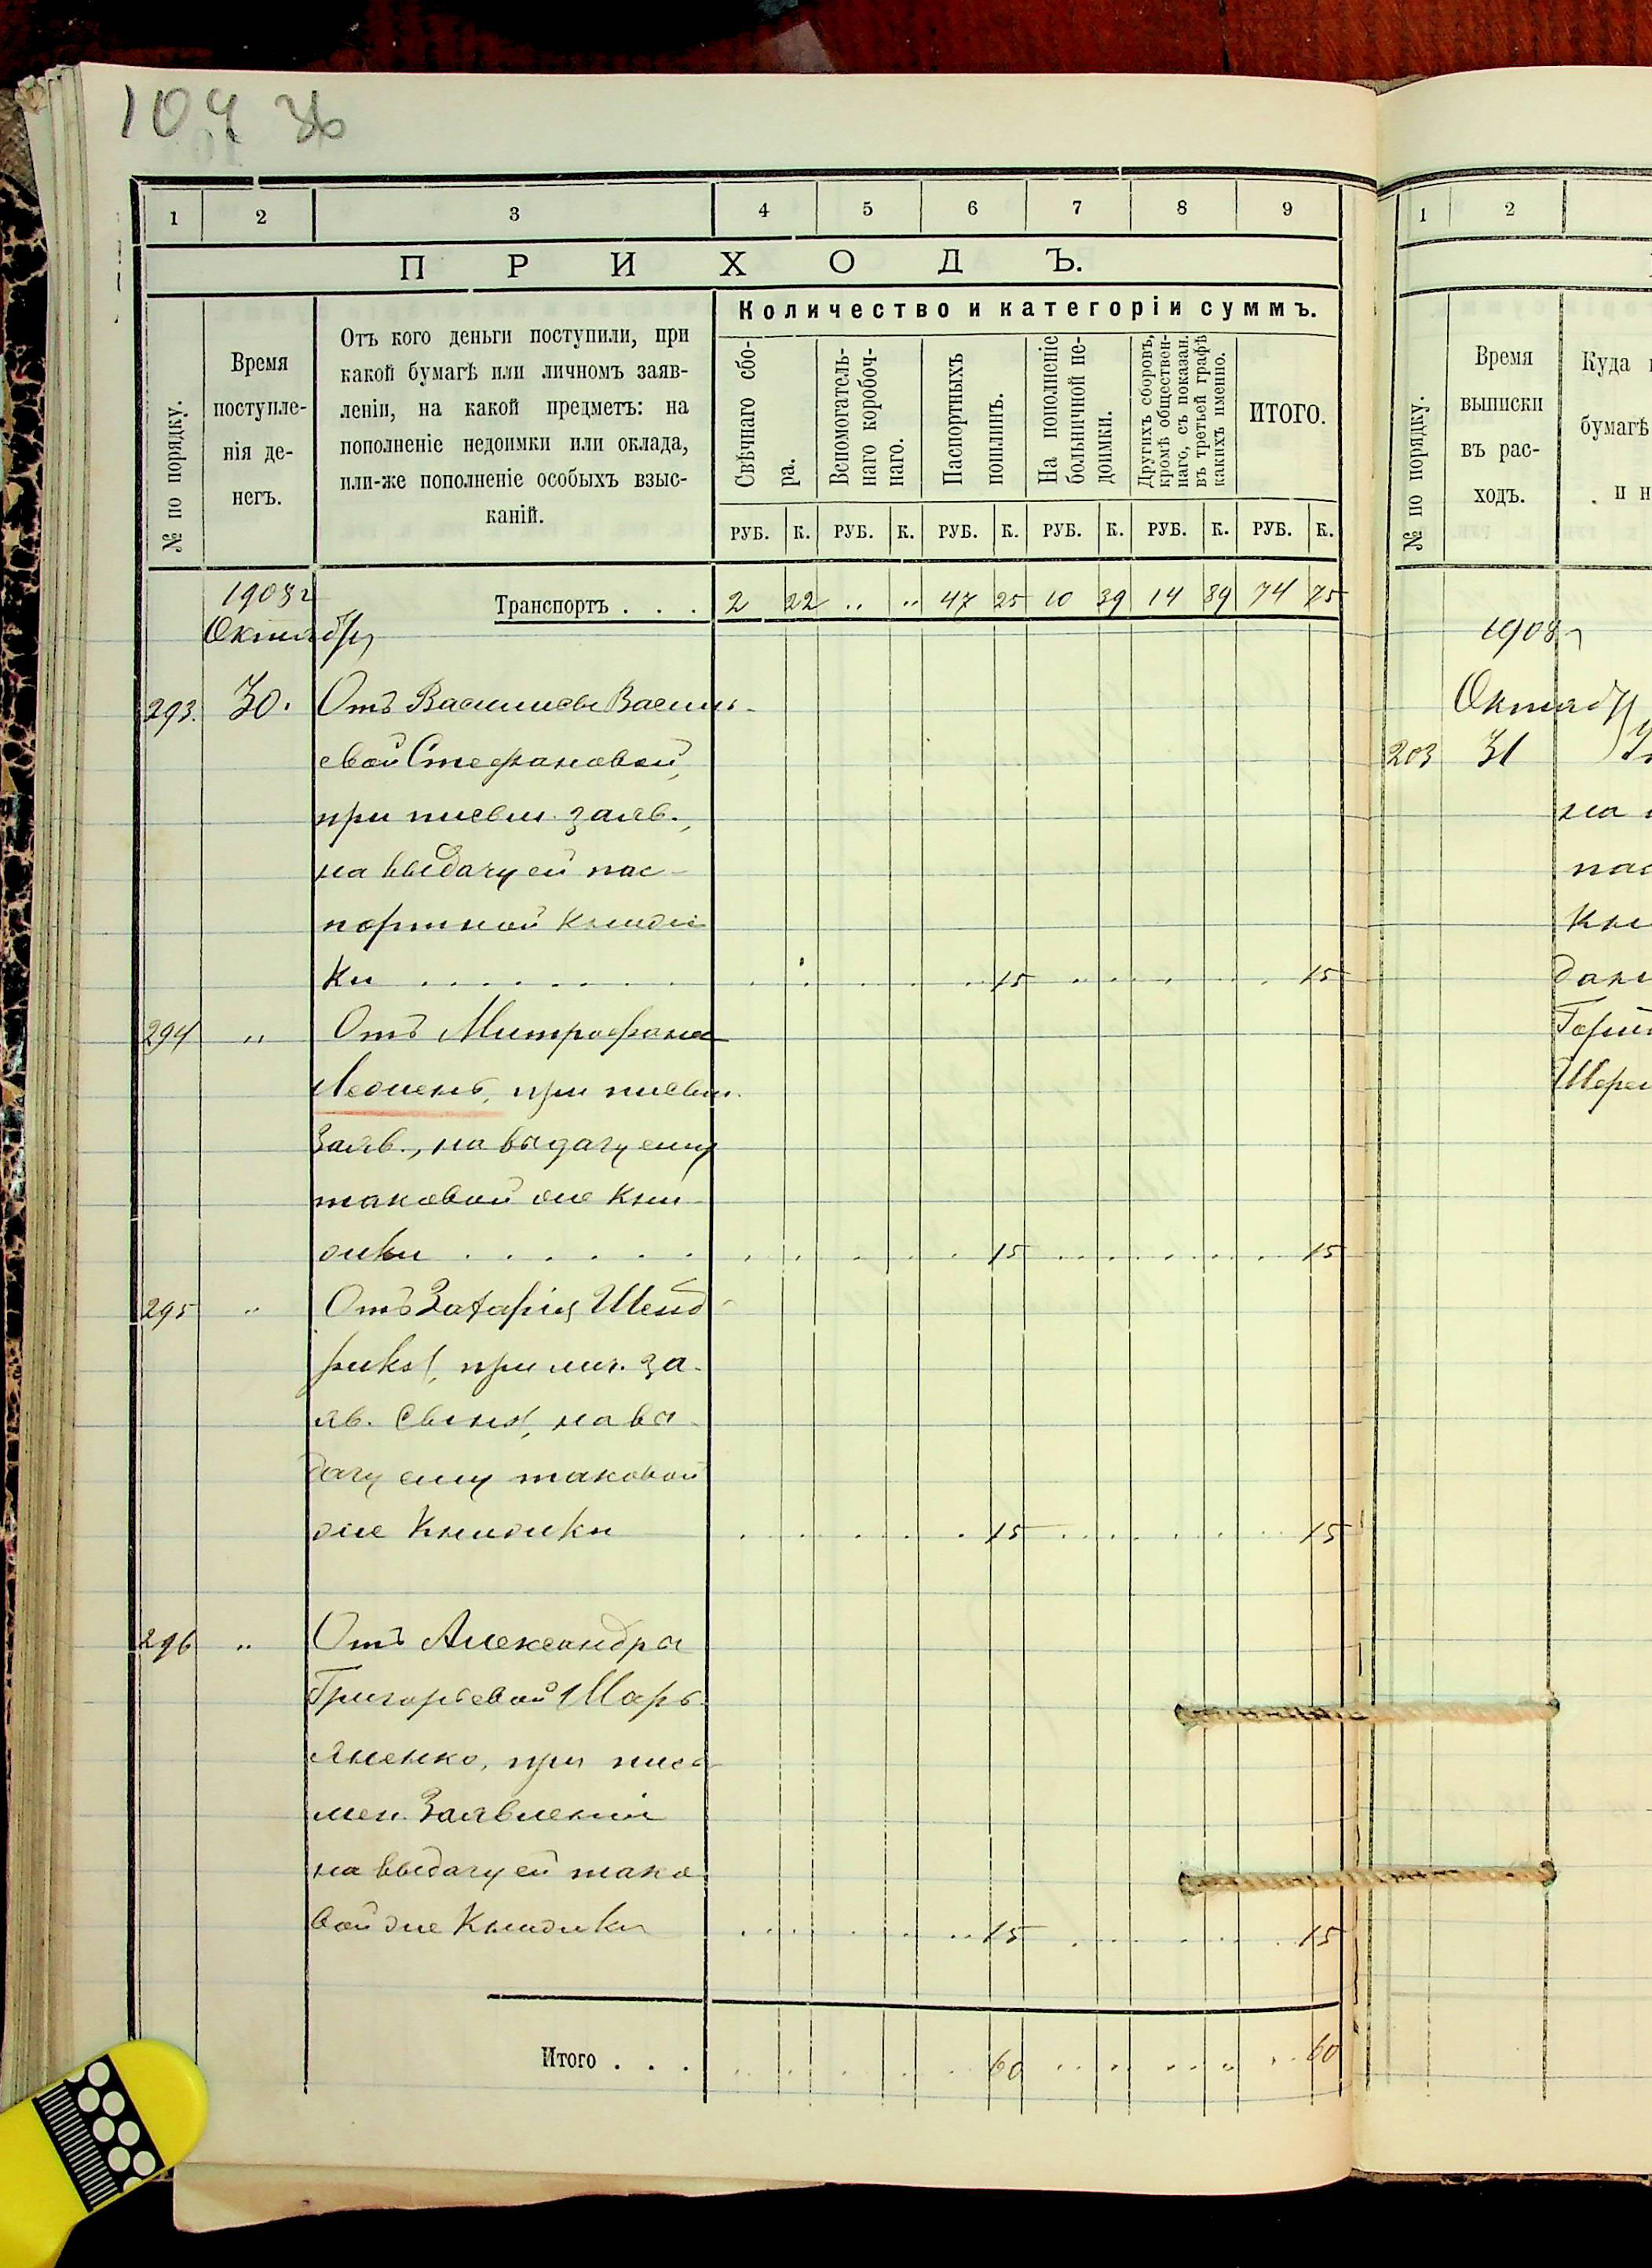 104 зв
1 2 3 4 5 6 7 8 9
ПРИХОДЪ.
№ по порядку.
Время поступле-
нія де-
негъ.
Отъ кого деньги поступили, при
какой бумагѣ или личномъ заяв-
леніи, на какой предметъ: на
пополненіе недоимки или оклада,
или-же пополненіе особыхъ взыс-
каній.
Количество и категоріи суммъ.
Свѣчнаго сбо-
ра.
Вспомогатель-
наго коробоч-
наго.
Паспортныхъ
пошлинъ.
На пополненіе
больничной не-
доимки.
Другихъ сборовъ,
кромѣ обществен-
наго, съ показан.
въ третьей графѣ
какихъ именно.
ИТОГО.
РУБ. К. РУБ. К. РУБ. К. РУБ. К. РУБ. К. РУБ. К.
1908 г
Транспортъ . . . 2 22 " " 47 25 10 39 14 89 74 75
Октября
293. 30. Отъ Василисы Василь-
евой Стефановой,
при письм. заяв.,
на выдачу ей пас-
портной книж-
ки . . . 15 . . . 15
294 " Отъ Митрофана
при письм.
заяв., на выдачу ему
таковой же кни-
жки . . . 15 . . . 15
295 " Отъ Захарія Шенд-
рика, при лич. за-
яв. сына, на вы-
дачу ему таковой
же книжки . . . 15 . . . 15
296 " Отъ Александра
Григорьевой Марь-
яненко, при пись-
мен. заявленіи
на выдачу ей тако-
вой же книжки . . . 15 . . . 15
Итого . . . 60 . . . 60
1 2
№ по порядку.
Время
выписки
въ рас-
ходъ.
Куда
бумагѣ
и н
1908 г
Октября
203 31
на
пас
кни
дан